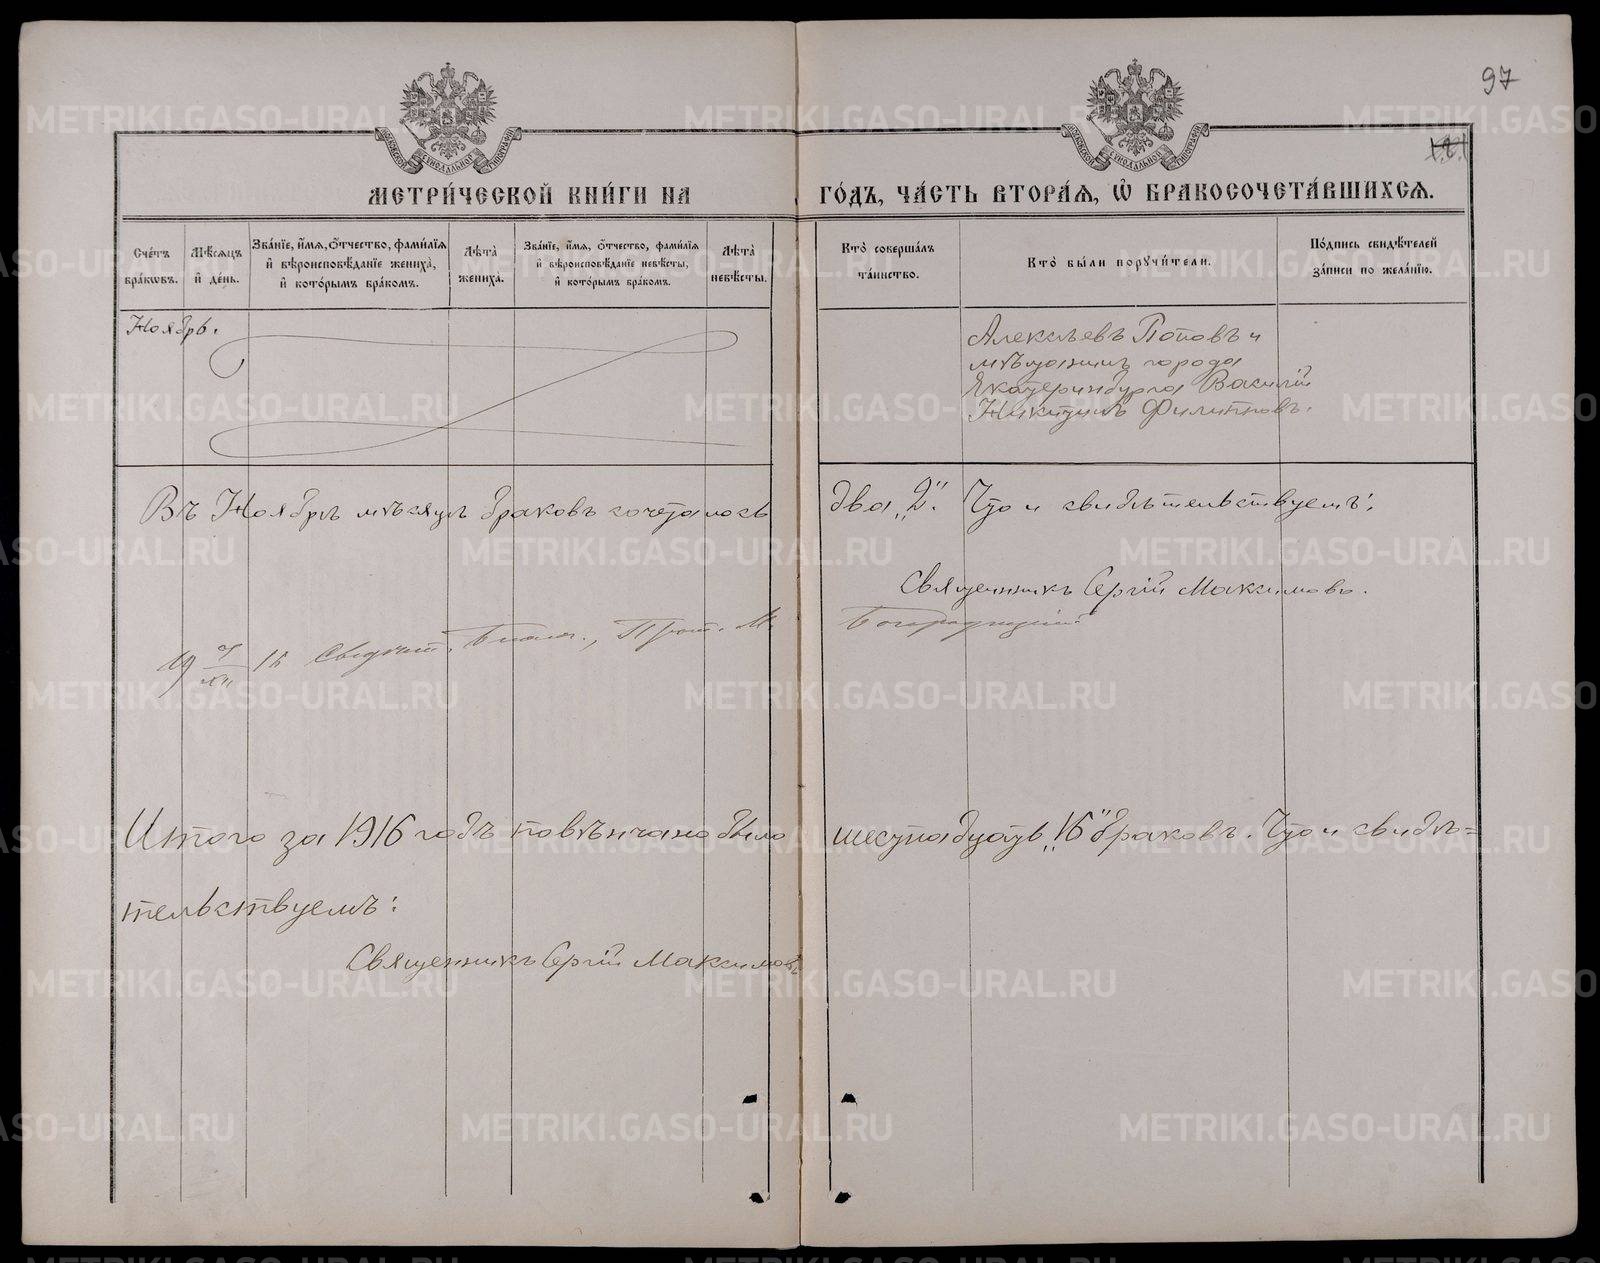 97
МЕТРИ́ЧЕСКОЙ КНИ́ГИ НА ГО́ДЪ, ЧА́СТЬ ВТОРА́Я, Ѽ БРАКОСОЧЕТА́ВШИХСЯ.
Сче́тъ бра́кѡвъ.
Мѣ́сяцъ и҆ де́нь.
Зва́нїе, и҆́мя, ѻ҆́тчество, фами́лїя и҆ вѣроисповѣ́данїе жениха̀, и҆ кото́рымъ бра́комъ.
Лѣ́та жениха̀.
Зва́нїе, и҆́мя, ѻ҆́тчество, фами́лїя и҆ вѣроисповѣ́данїе невѣ́сты, и҆ кото́рымъ бра́комъ.
Лѣ́та невѣ́сты.
Кто̀ соверша́лъ та́инство.
Кто̀ бы́ли порꙋчи́тели.
По́дпись свидѣ́телей за́писи по жела́нїю.
Ноябрь.
Алексѣевъ Поповъ и
мѣщанинъ города
Екатеринбурга Василій
Никитинъ Филипповъ.
Въ Ноябрѣ мѣсяцѣ браковъ сочеталось два „2". Что и свидѣтельствуемъ:
Священникъ Сергій Максимовъ.
19 XII 16 Свидѣт. Благоч., Прот. М. Богородицкій
Итого за 1916 годъ повѣнчано было шестнадцать „16" браковъ. Что и свидѣ=
тельствуемъ:
Священникъ Сергій Максимовъ